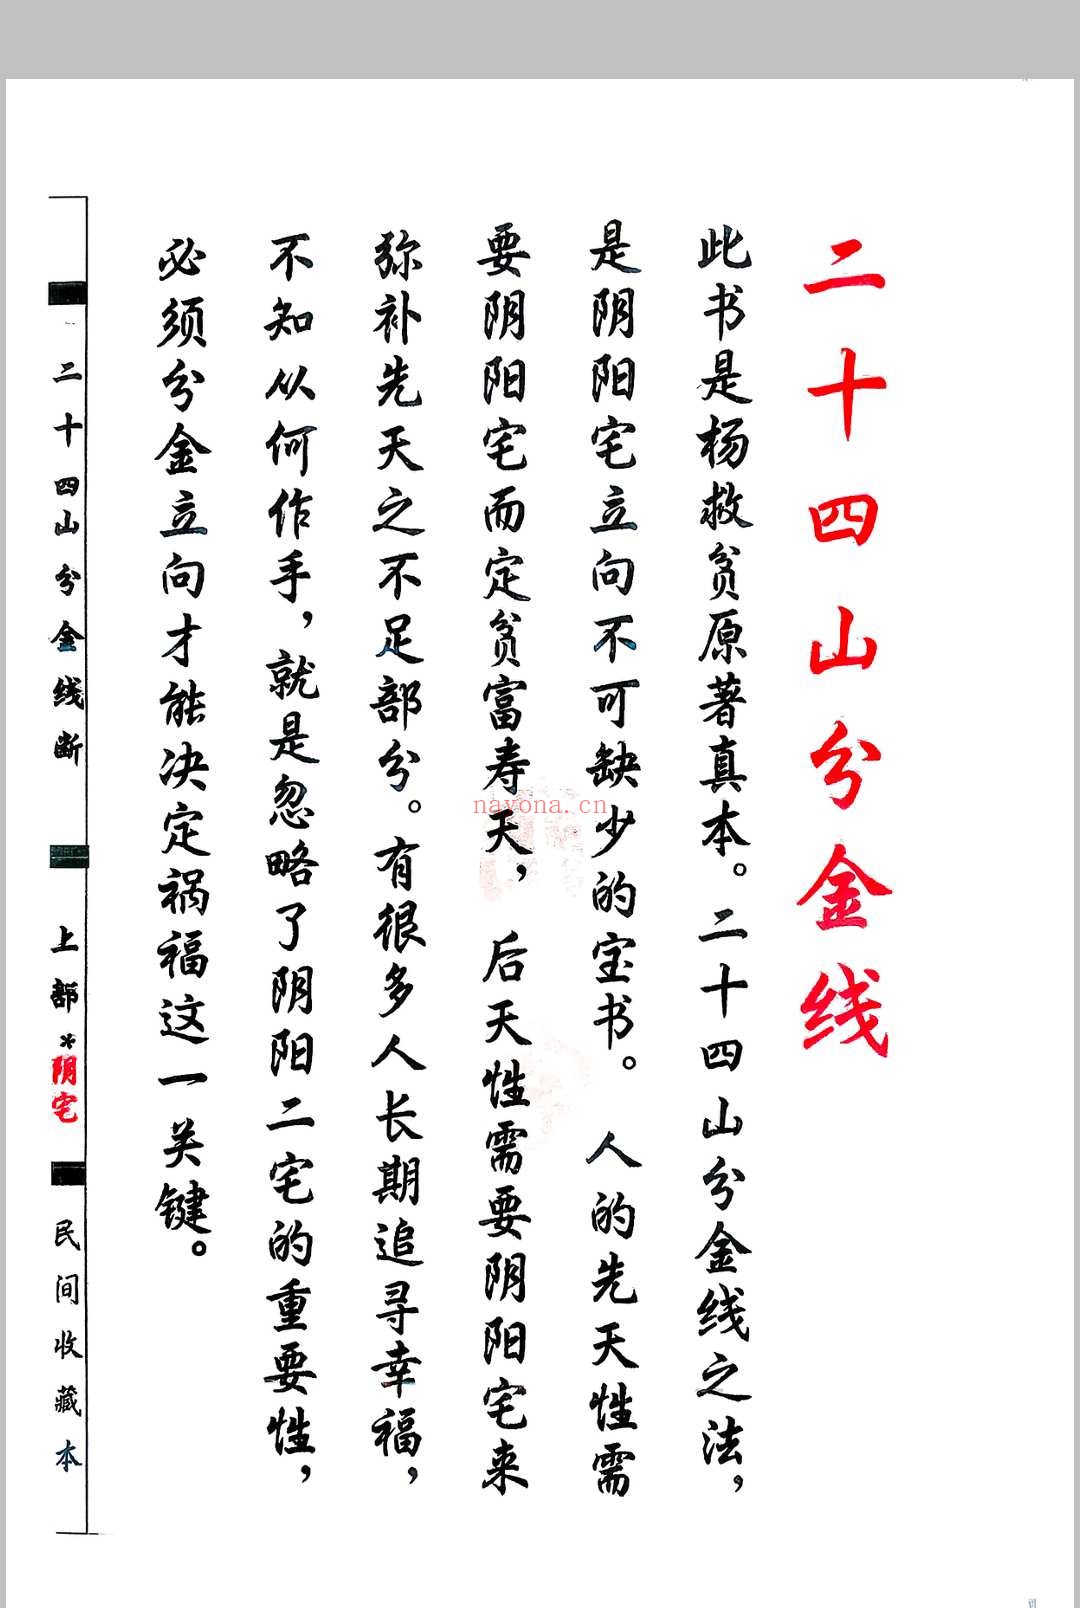 二十四山分金线
此书是杨救贫原著真本。二十四山分金线之法，
是阴阳宅立向不可缺少的宝书。 人的先天性需
要阴阳宅而定贫富寿天， 后天性需要阴阳宅来
弥补先天之不足部分。有很多人长期追寻幸福，
不知从何作手，就是忽略了阴阳二宅的重要性，
必须分金立向才能决定祸福这一关键。
二十四山分金线断
上部*阴宅
民间收藏本
nayona.cn